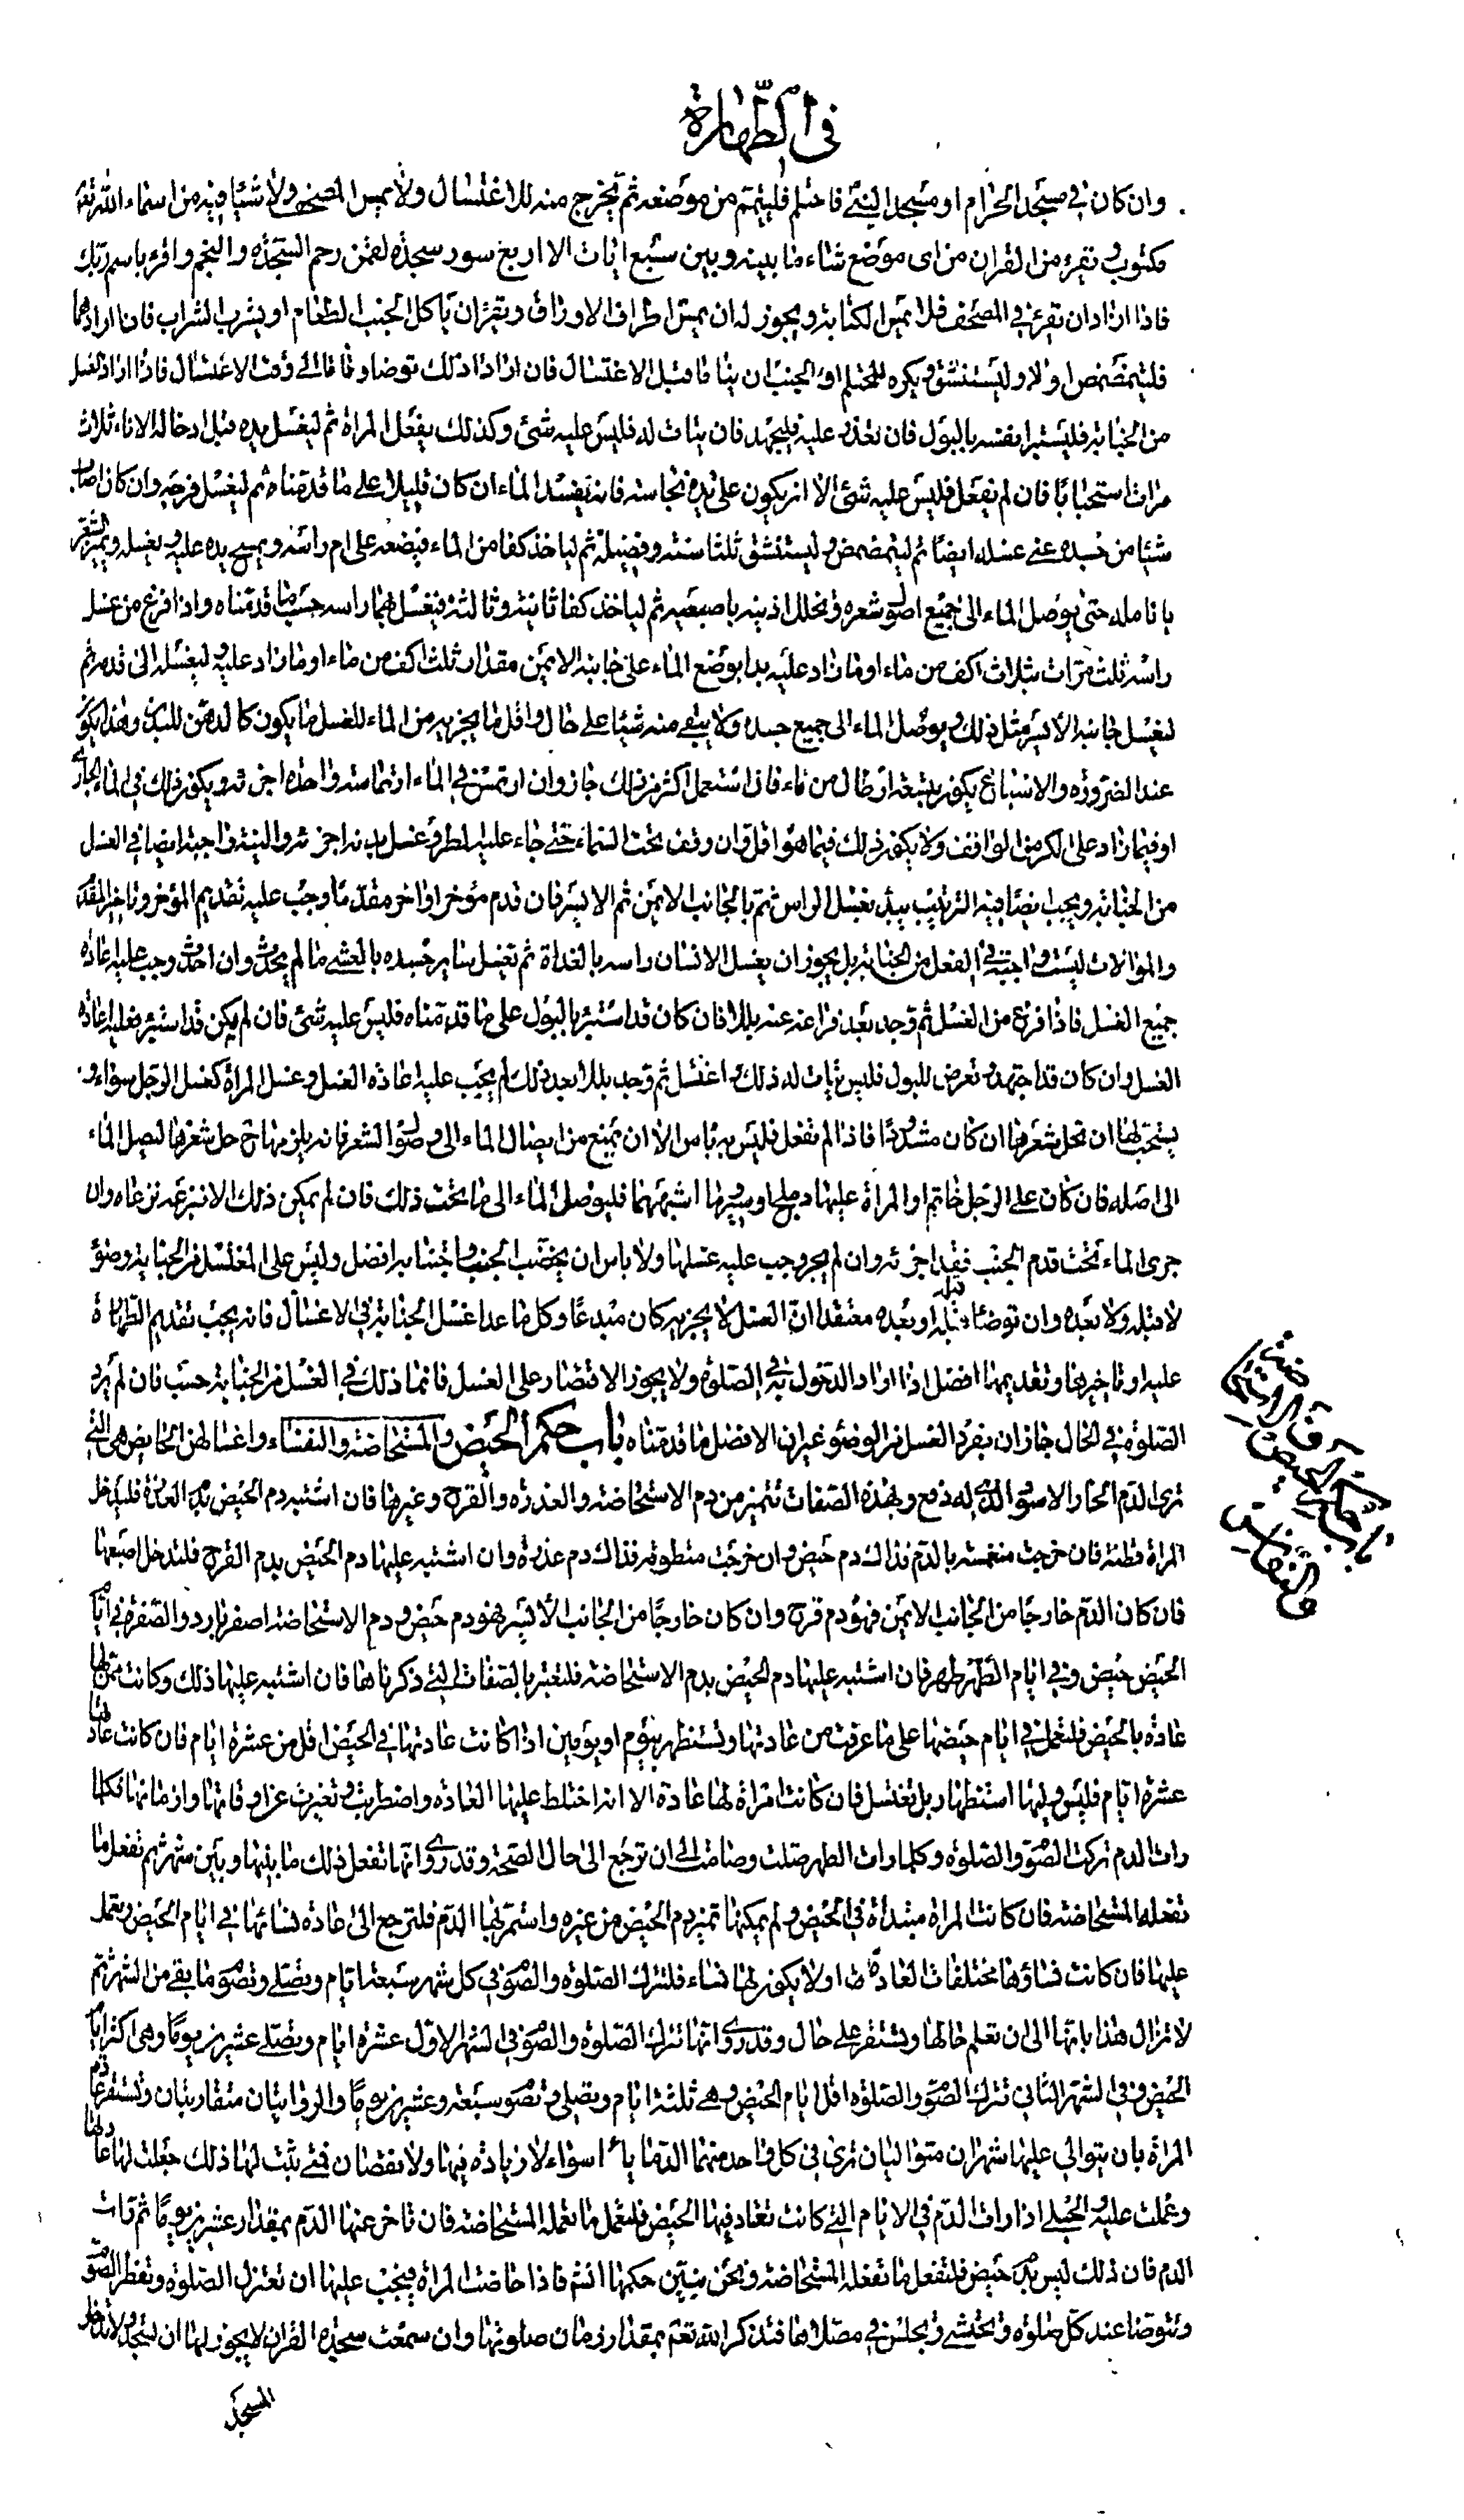 في الطهارة
وان كان في مسجد الحرام او مسجد النبي فاحتلم فليتيمم من موضعه ثم يخرج منه للاغتسال ولا يمس المصحف ولا شيئا فيه من اسماء الله تعه
مكتوب ويقرء من القران من اى موضع شاء ما بينه وبين سبع ايات الا اربع سور سجده لقمن وحم السجده والنجم واقرء باسم ربك
فاذا اراد ان يقرء في المصحف فلا يمس الكتابة ويجوز له ان يمس اطراف الاوراق ويقرء ان ياكل الجنب الطعام او يشرب الشراب فان ارادهما
فليتمضمض اولا وليستنشق ويكره للمحتلم او الجنب ان يناما قبل الاغتسال فان ارادا ذلك توضا وناما الى وقت الاغتسال فاذا اراد الغسل
من الجنابة فليستبرا نفسه بالبول فان تعذر عليه فليجهد فان يتات له فليس عليه شئ وكذلك يفعل المراة ثم ليغسل يده قبل ادخالها الاناء ثلاث
مرات استحبابا فان لم يفعل فليس عليه شئ الا ان يكون على يده نجاسة فانه يفسد الماء ان كان قليلا على ما قدمناه ثم ليغسل فرجه وان كان اصاب
شيئا من جسده مني غسله ايضا ثم ليتمضمض وليستنشق ثلثا سنة وفضيلة ثم لياخذ كفا من الماء فيضعه على ام راسه ويمسح يده عليه ويغسله ويميز الشعر
بانامله حتى يوصل الماء الى جميع اصول شعره ويخلل اذنيه باصبعيه ثم لياخذ كفا ثانية وثالثة فيغسل بهما راسه حسب ما قدمناه واذا فرغ من غسل
راسه ثلث مرات بثلاث اكف من ماء او ما زاد عليه بدا بوضع الماء على جانبه الايمن مقدار ثلث اكف من ماء او ما زاد عليه وليغسله الى قدمه ثم
ليغسل جانبه الايسر مثل ذلك ويوصل الماء الى جميع جسده ولا يبقى منه شيئا على حال واقل ما يجزيه من الماء للغسل ما يكون كالدهن للبدن وهذا يكون
عند الضرورة والاسباغ يكون بتسعة ارطال من ماء فان استعمل اكثر من ذلك جاز وان ارتمس في الماء ارتماسة واحدة اجزئه ويكون ذلك في الماء الجاري
او فيما زاد على الكر من الواقف ولا يكون ذلك فيما هو اقل وان وقف تحت السماء حتى جاء عليه المطر وغسل بدنه اجزئه والنية واجبة ايضا في الغسل
من الجنابة ويجب ايضا فيه الترتيب يبدء بغسل الراس ثم بالجانب الايمن ثم الايسر فان قدم مؤخرا واخر مقدما وجب عليه تقديم المؤخر وتاخير المقدم
والموالات ليست واجبة في الغسل من الجنابة بل يجوز ان يغسل الانسان راسه بالغداة ثم يغسل سائر جسده بالعشي ما لم يحدث وان احدث وجب عليه اعادة
جميع الغسل فاذا فرغ من الغسل ثم وجد بعد فراغه عنه بللا فان كان قد استبرء بالبول على ما قدمناه فليس عليه شئ فان لم يكن قد استبرء فعليه اعادة
الغسل وان كان قد اجتهد وتعرض للبول فليس يتات له ذلك واغتسل ثم وجد بللا بعد ذلك لم يجب عليه اعادة الغسل وغسل المراة كغسل الرجل سواء و
يستحب لها ان تحل شعرها ان كان مشدودا فاذا لم تفعل فليس به باس الا ان يمنع من ايصال الماء الى اصول الشعر فانه يلزمها ح حل شعرها ليصل الماء
الى اصله فان كان على الرجل خاتم او المراة عليها دملج او سير وما اشبههما فليوصل الماء الى ما تحت ذلك فان لم يمكن ذلك الا بنزعه نزعاه وان
جرى الماء تحت قدم الجنب فقد اجزئه وان لم يجر وجب عليه غسلها ولا باس ان يختضب الجنب واجتنابه افضل وليس على المغتسل من الجنابة وضوء
لا قبله ولا بعده وان توضا قبله او بعده معتقدا ان الغسل لا يجزيه كان مبدعا وكل ما عدا غسل الجنابة في الاغسال فانه يجب تقديم الطهارة
عليه او تاخيرها وتقديمها افضل اذا اراد الدخول به في الصلوة ولا يجوز الاقتصار على الغسل فانما ذلك في الغسل من الجنابة حسب فان لم يرد
الصلوة في الحال جاز ان يفرد الغسل من الوضوء غير ان الافضل ما قدمناه باب حكم الحيض والمستحاضة والنفساء واغسالهن الحايض هي التي
ترى الدم الحار الاسود الذي له دفع وبهذه الصفات تتميز من دم الاستحاضة والعذرة والقرح وغيرها فان اشتبه دم الحيض بدم العذرة فليدخل
المراة قطنة فان خرجت منغمسة بالدم فذاك دم حيض وان خرجت متطوقة فذاك دم عذرة وان اشتبه عليها دم الحيض بدم القرح فلتدخل اصبعها
فان كان الدم خارجا من الجانب الايمن فهو دم قرح وان كان خارجا من الجانب الايسر فهو دم حيض ودم الاستحاضة اصفر بارد والصفرة في ايام
الحيض حيض وفي ايام الطهر طهر فان اشتبه عليها دم الحيض بدم الاستحاضة فلتعتبر بالصفات التي ذكرناها فان اشتبه عليها ذلك وكانت ممن لها
عادة بالحيض فلتعمل في ايام حيضها على ما عرفت من عادتها وتستظهر بيوم او يومين اذا كانت عادتها في الحيض اقل من عشرة ايام فان كانت عادتها
عشرة ايام فليس عليها استظهار بل تغتسل فان كانت امراة لها عادة الا انه اختلط عليها العادة واضطربت وتغيرت عن اوقاتها وازمانها فكلما
رات الدم تركت الصوم والصلوة وكلما رات الطهر صلت وصامت الى ان ترجع الى حال الصحة وقد روى انها تفعل ذلك ما بينها وبين شهر ثم تفعل ما
تفعله المستحاضة فان كانت المراة مبتداة في الحيض ولم يمكنها تميز دم الحيض من غيره واستمر بها الدم فلترجع الى عادة نسائها في ايام الحيض وتعمل
عليها فان كانت نساؤها مختلفات العادة او لا يكون لها نساء فلتترك الصلوة والصوم في كل شهر سبعة ايام وتصلي وتصوم ما بقي من الشهر ثم
لا تزال هذا بابها الى ان تعلم حالها وتستقر على حال وقد روى انها تترك الصلوة والصوم في الشهر الاول عشرة ايام وتصلي عشرين يوما وهي اكثر ايام
الحيض وفي الشهر الثاني تترك الصوم والصلوة اقل ايام الحيض وهي ثلثة ايام وتصلي وتصوم سبعة وعشرين يوما والروايتان متقاربتان وتستقر عادة
المراة بان يتوالى عليها شهران متواليان ترى في كل واحد منهما الدم اياما سواء لا زيادة فيها ولا نقصان فمتى ثبت لها ذلك جعلت لها عادة لها
وعملت عليه والحبلى اذا رات الدم في الايام التي كانت تعتاد فيها الحيض فلتعمل ما تعمله المستحاضة فان تاخر عنها الدم بمقدار عشرين يوما ثم رات
الدم فان ذلك ليس بدم حيض فلتفعل ما تفعله المستحاضة ونحن نبين حكمها انشم فاذا حاضت المراة فيجب عليها ان تعتزل الصلوة وتفطر الصوم
وتتوضا عند كل صلوة وتحتشي وتجلس في مصلاها فتذكر الله تعم بمقدار زمان صلوتها وان سمعت سجدة القران لا يجوز لها ان تسجد ولا تدخل
المسجد
باب حكم الحيض
والاستحاضة
والنفاس